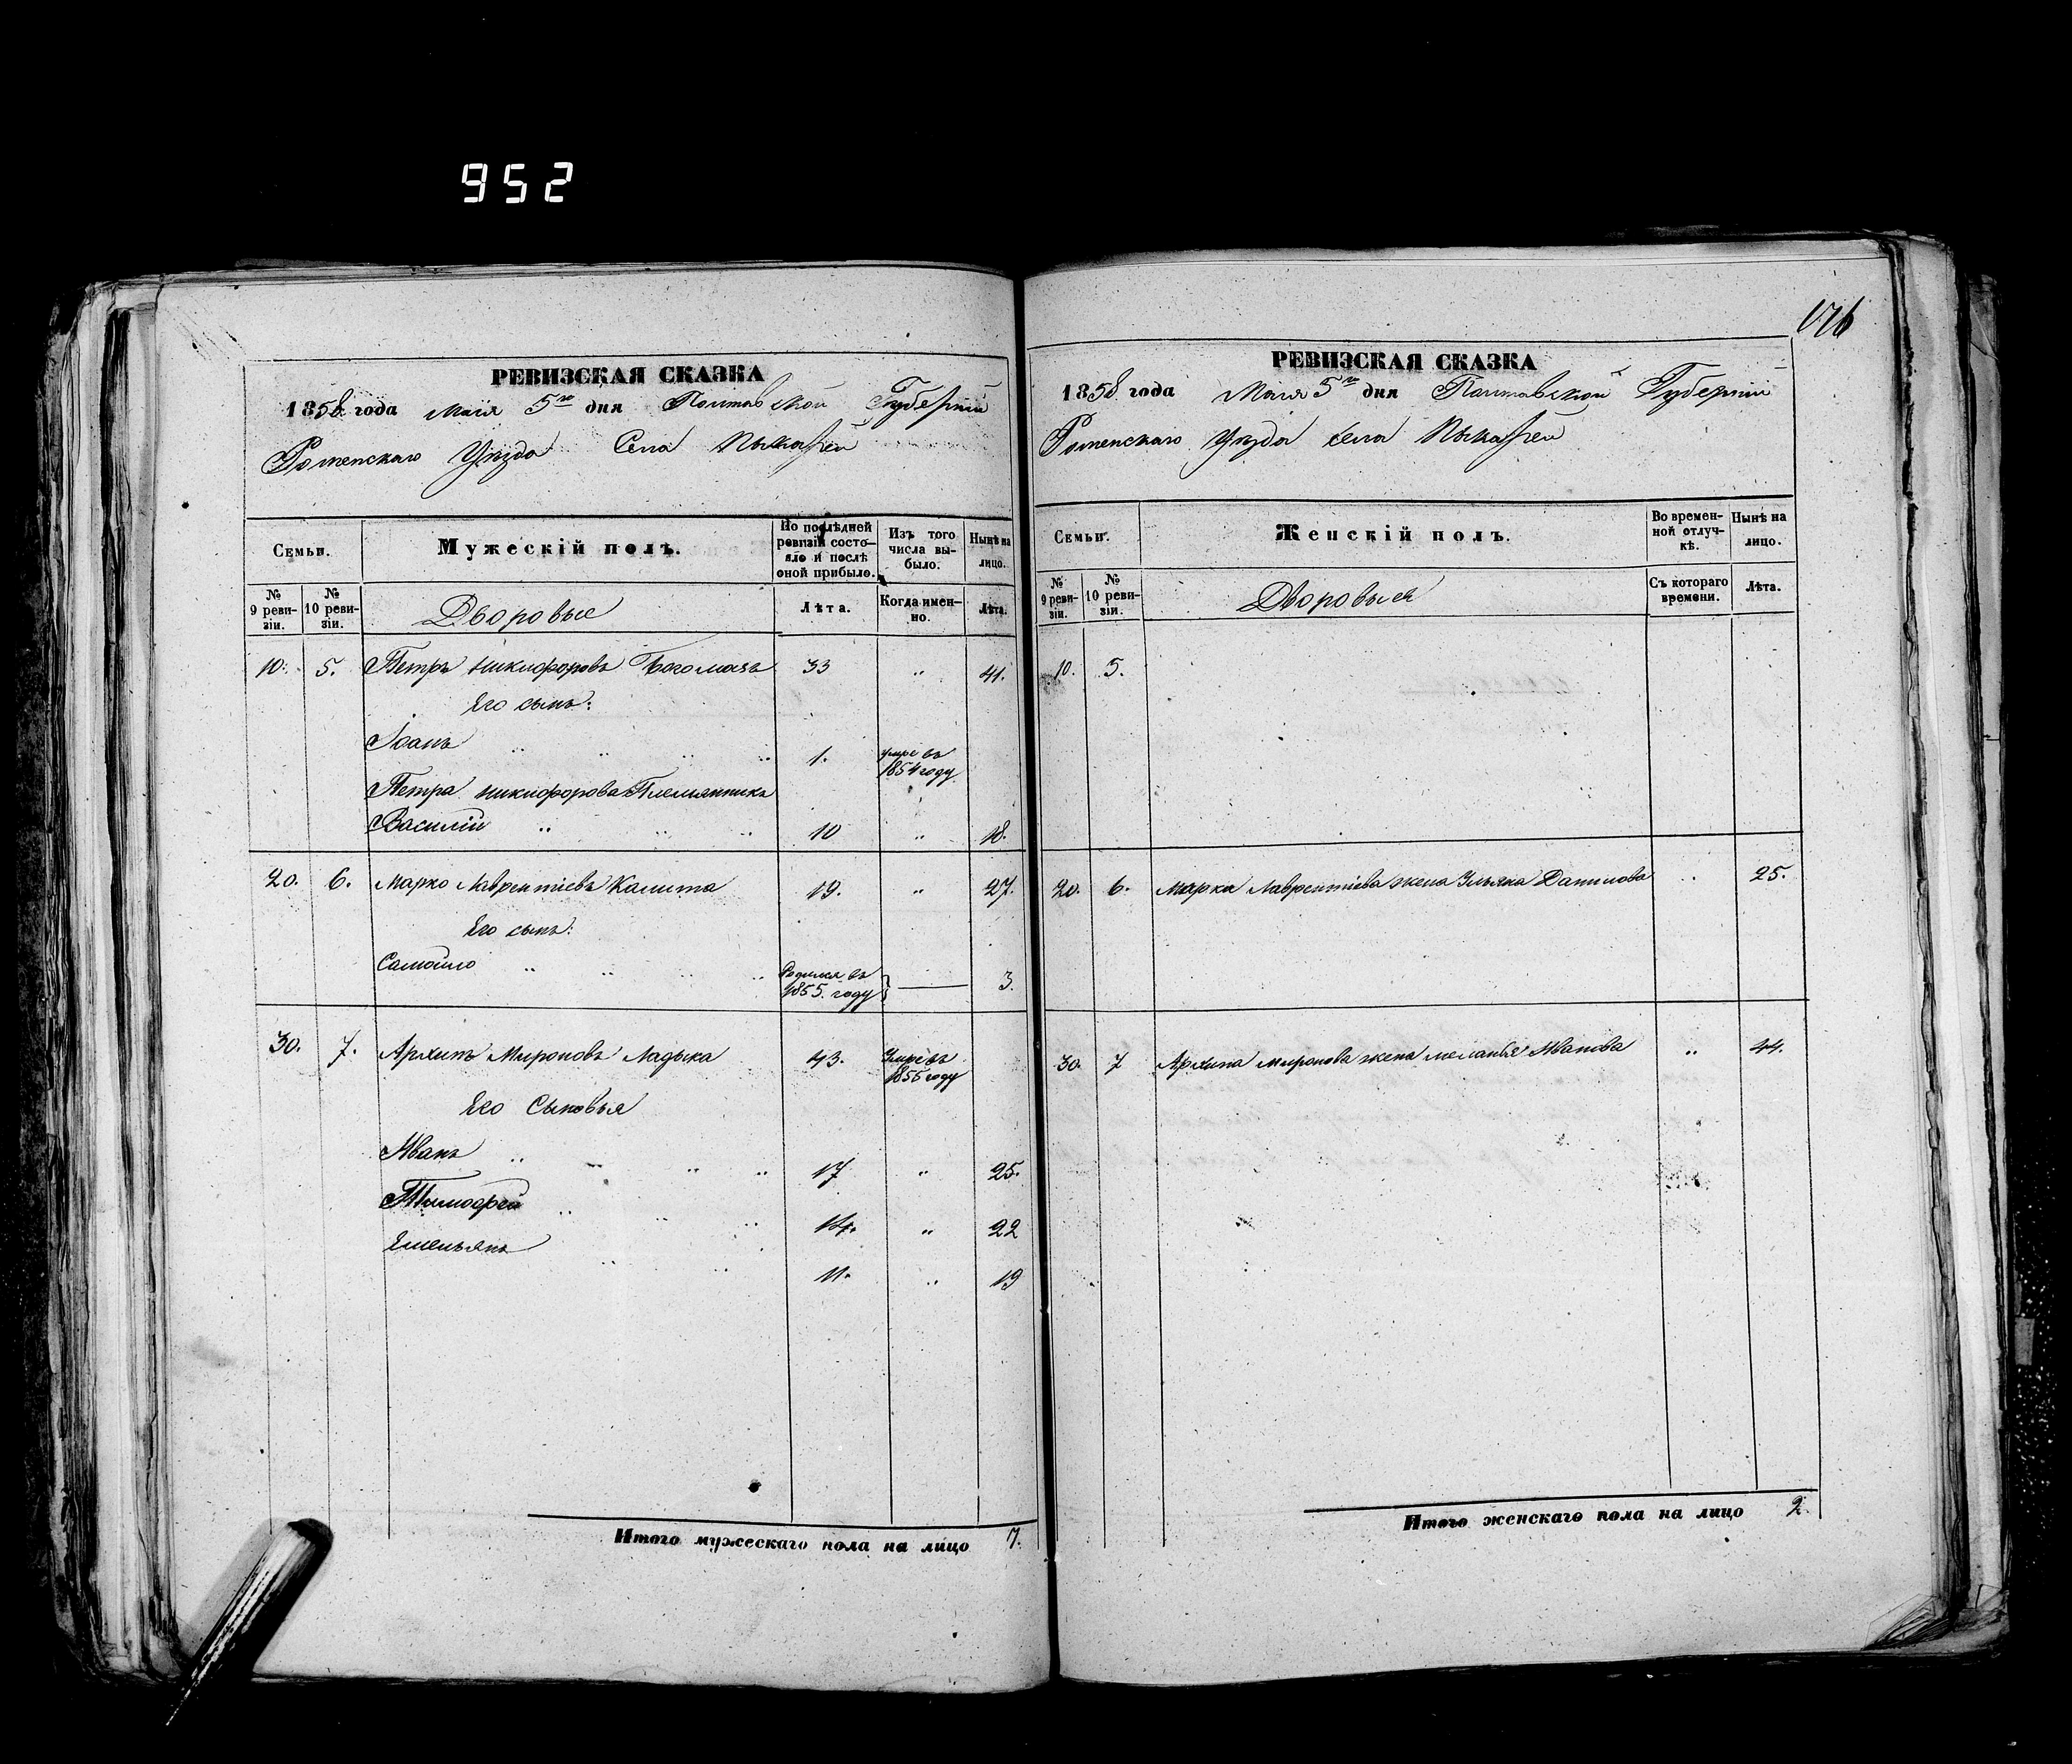 952
176
РЕВИЗСКАЯ СКАЗКА
1858 года Маія 5го дня Полтавской Губерніи
Роменскаго Уѣзда Села
Семьи.
Мужескій полъ.
По послѣдней ревизіи состояло и послѣ оной прибыло.
Изъ того числа выбыло.
Нынѣ на лицо.
№ 9 ревизіи.
№ 10 ревизіи.
Дворовые
Лѣта.
Когда именно.
Лѣта.
10. 5. Петръ Никифоровъ Богомазъ 33 " 41.
Его сынъ:
Іоанъ " " " " 1. умре въ 1854 году
Петра Никифорова Племянникъ
Василій " " " 10 " 18.
20. 6. Марко Лаврентіевъ Калита 19. " 27.
Его сынъ:
Самойло " " " " Родился въ 1855. году } — 3.
30. 7. Архипъ Мироновъ Ладыка 43. Умре въ 1855 году
Его Сыновья
Иванъ " " " " 17 " 25.
Тимофей " " " 14. " 22
Емельянъ " " 11. " 19
Итого мужескаго пола на лицо 7.
РЕВИЗСКАЯ СКАЗКА
1858 года Маія 5го дня Полтавской Губерніи
Роменскаго Уѣзда Села
Семьи.
Женскій полъ.
Во временной отлучкѣ.
Нынѣ на лицо.
№ 9 ревизіи.
№ 10 ревизіи.
Дворовыя
Съ котораго времени.
Лѣта.
10. 5.
20. 6. Марка Лаврентіева жена Ульяна Данилова " 25.
30. 7 Архипа Миронова жена Меланья Иванова " 44.
Итого женскаго пола на лицо 2.